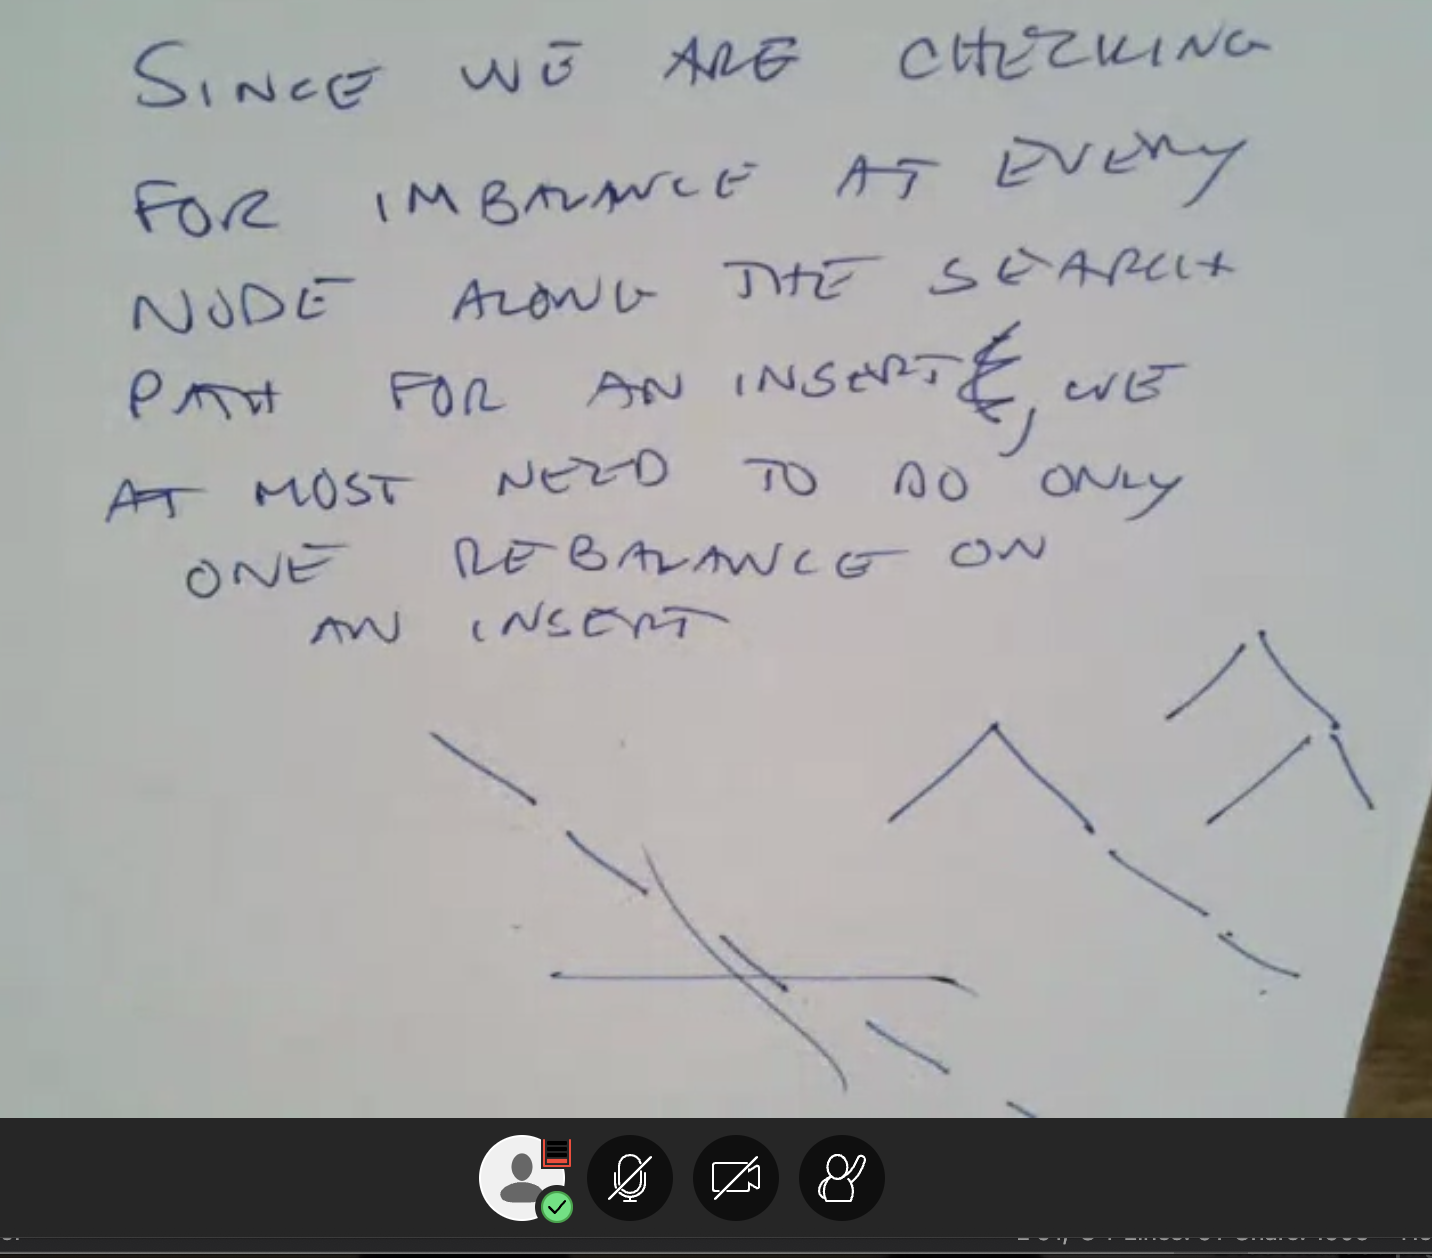 SINCE WE ARE CHECKING
FOR IMBALANCE AT EVERY
NODE ALONG THE SEARCH
PATH FOR AN INSERT, WE
AT MOST NEED TO DO ONLY
ONE REBALANCE ON
AN INSERT